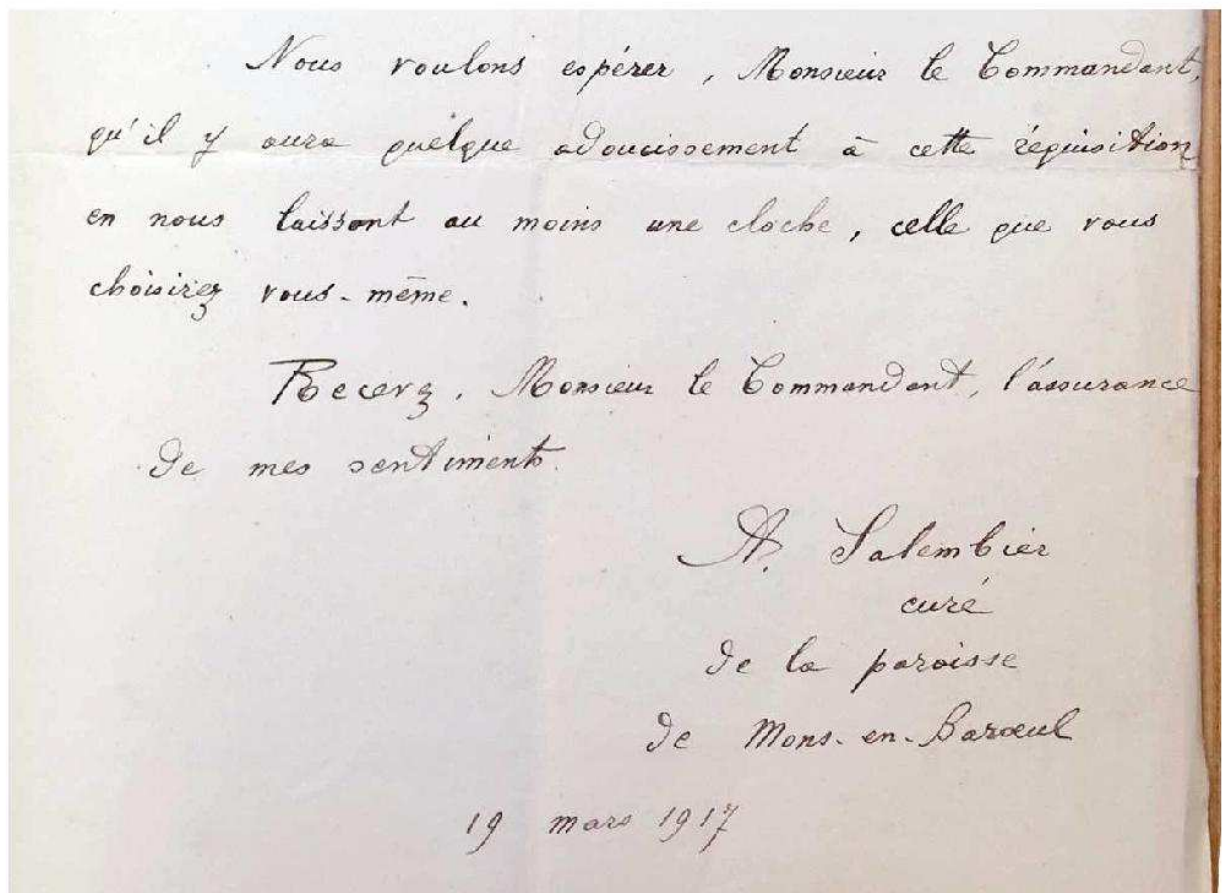 Nous voulons espérer, Monsieur le Commandant,
qu'il y aura quelque adoucissement à cette réquisition
en nous laissant au moins une cloche, celle que vous
choisirez vous-même.
Recevez, Monsieur le Commandant, l'assurance
de mes sentiments.
A. Salembier
curé
de la paroisse
de Mons-en-Barœul
19 mars 1917